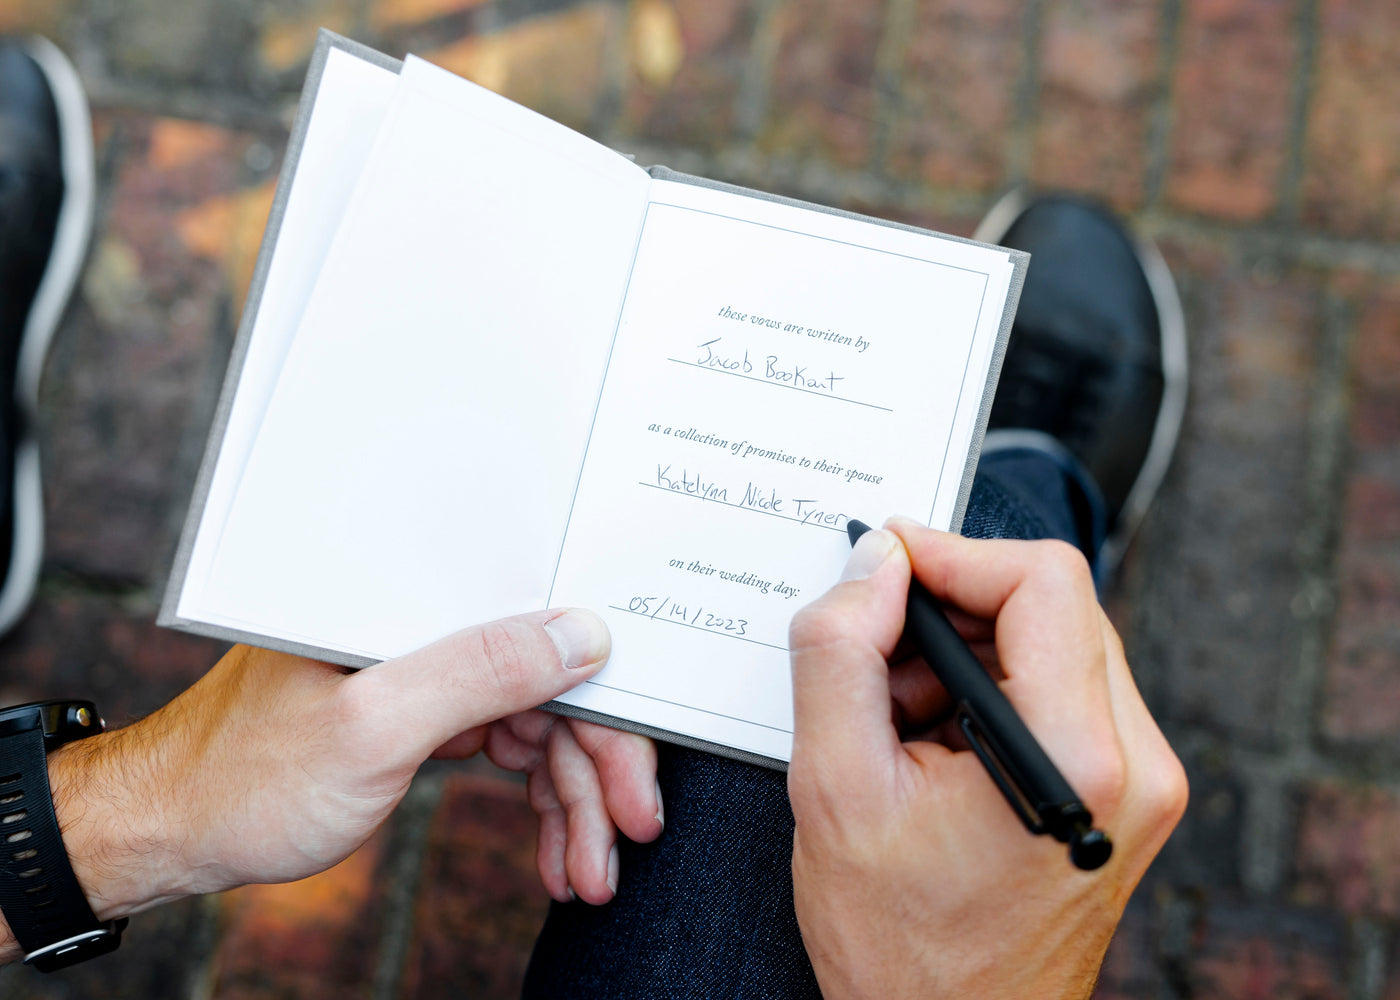 these vows are written by
Jacob Bookart
as a collection of promises to their spouse
Katelynn Nicole Tyner
on their wedding day:
05/14/2023